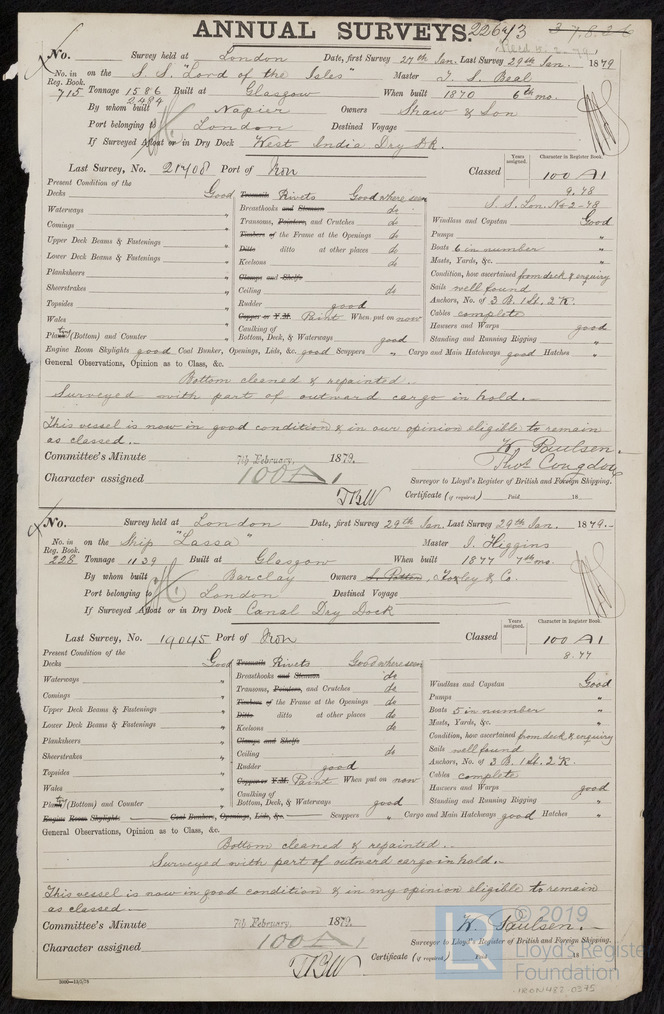 ANNUAL SURVEYS. 22643
No. Survey held at London Date, first Survey 27th Jan. Last Survey 29th Jan. 1879
No. in Reg. Book. on the S.S. "Lord of the Isles" Master
715 Tonnage 1586 Built at Glasgow When built 1870 6th mo.
2484
By whom built Napier Owners Shaw & Son
Port belonging to London Destined Voyage
If Surveyed Afloat or in Dry Dock West India Dry Dk.
Last Survey, No. 21408 Port of Iron Classed Years assigned. Character in Register Book. 100 A1
9.78
S.S. Lon. No 2-78
Present Condition of the
Decks Good
Waterways "
Comings "
Upper Deck Beams & Fastenings "
Lower Deck Beams & Fastenings "
Planksheers "
Sheerstrakes "
Topsides "
Wales "
Plating (Bottom) and Counter "
Treenails Rivets Good where seen
Breasthooks and Stemson do
Transoms, Pointers, and Crutches do
Timbers of the Frame at the Openings do
Ditto ditto at other places do
Keelsons do
Clamps and Shelfs
Ceiling do
Rudder good
Copper or Y.M. Paint When put on now
Caulking of Bottom, Deck, & Waterways good
Windlass and Capstan Good
Pumps "
Boats 6 in number "
Masts, Yards, &c. "
Condition, how ascertained from deck & enquiry
Sails well found
Anchors, No. of 3 B. 1 St. 2 K.
Cables complete
Hawsers and Warps good
Standing and Running Rigging "
Engine Room Skylights good Coal Bunker, Openings, Lids, &c. good Scuppers " Cargo and Main Hatchways good Hatches "
General Observations, Opinion as to Class, &c.
Bottom cleaned & repainted.
Surveyed with part of outward cargo in hold.
This vessel is now in good condition & in our opinion eligible to remain
as classed.
Committee's Minute 7th February, 1879.
Character assigned 100 A 1
W. Paulsen.
Thos Congdon
Surveyor to Lloyd's Register of British and Foreign Shipping.
Certificate (if required) Paid 18
No. Survey held at London Date, first Survey 29th Jan. Last Survey 29th Jan. 1879.
No. in Reg. Book. on the Ship "Lassa" Master J. Higgins
228 Tonnage 1139 Built at Glasgow When built 1877 7th mo.
By whom built Barclay Owners
Port belonging to London Destined Voyage
If Surveyed Afloat or in Dry Dock Canal Dry Dock
Last Survey, No. 19045 Port of Iron Classed Years assigned. Character in Register Book. 100 A1
8.77
Present Condition of the
Decks Good
Waterways "
Comings "
Upper Deck Beams & Fastenings "
Lower Deck Beams & Fastenings "
Planksheers "
Sheerstrakes "
Topsides "
Wales "
Plating (Bottom) and Counter "
Treenails Rivets Good where seen
Breasthooks and Stemson do
Transoms, Pointers, and Crutches do
Timbers of the Frame at the Openings do
Ditto ditto at other places do
Keelsons do
Clamps and Shelfs
Ceiling do
Rudder good
Copper or Y.M. Paint When put on now
Caulking of Bottom, Deck, & Waterways good
Windlass and Capstan Good
Pumps "
Boats 5 in number "
Masts, Yards, &c. "
Condition, how ascertained from deck & enquiry
Sails well found
Anchors, No. of 3 B. 1 St. 2 K.
Cables complete
Hawsers and Warps good
Standing and Running Rigging "
Engine Room Skylights Coal Bunkers, Openings, Lids, &c. Scuppers " Cargo and Main Hatchways good Hatches "
General Observations, Opinion as to Class, &c.
Bottom cleaned & repainted.
Surveyed with part of outward cargo in hold.
This vessel is now in good condition & in my opinion eligible to remain
as classed.
Committee's Minute 7th February, 1879.
Character assigned 100 A 1
W. Paulsen.
Surveyor to Lloyd's Register of British and Foreign Shipping.
Certificate (if required) Paid 18
© 2019
LR Lloyd's Register
Foundation
IRON482-0375